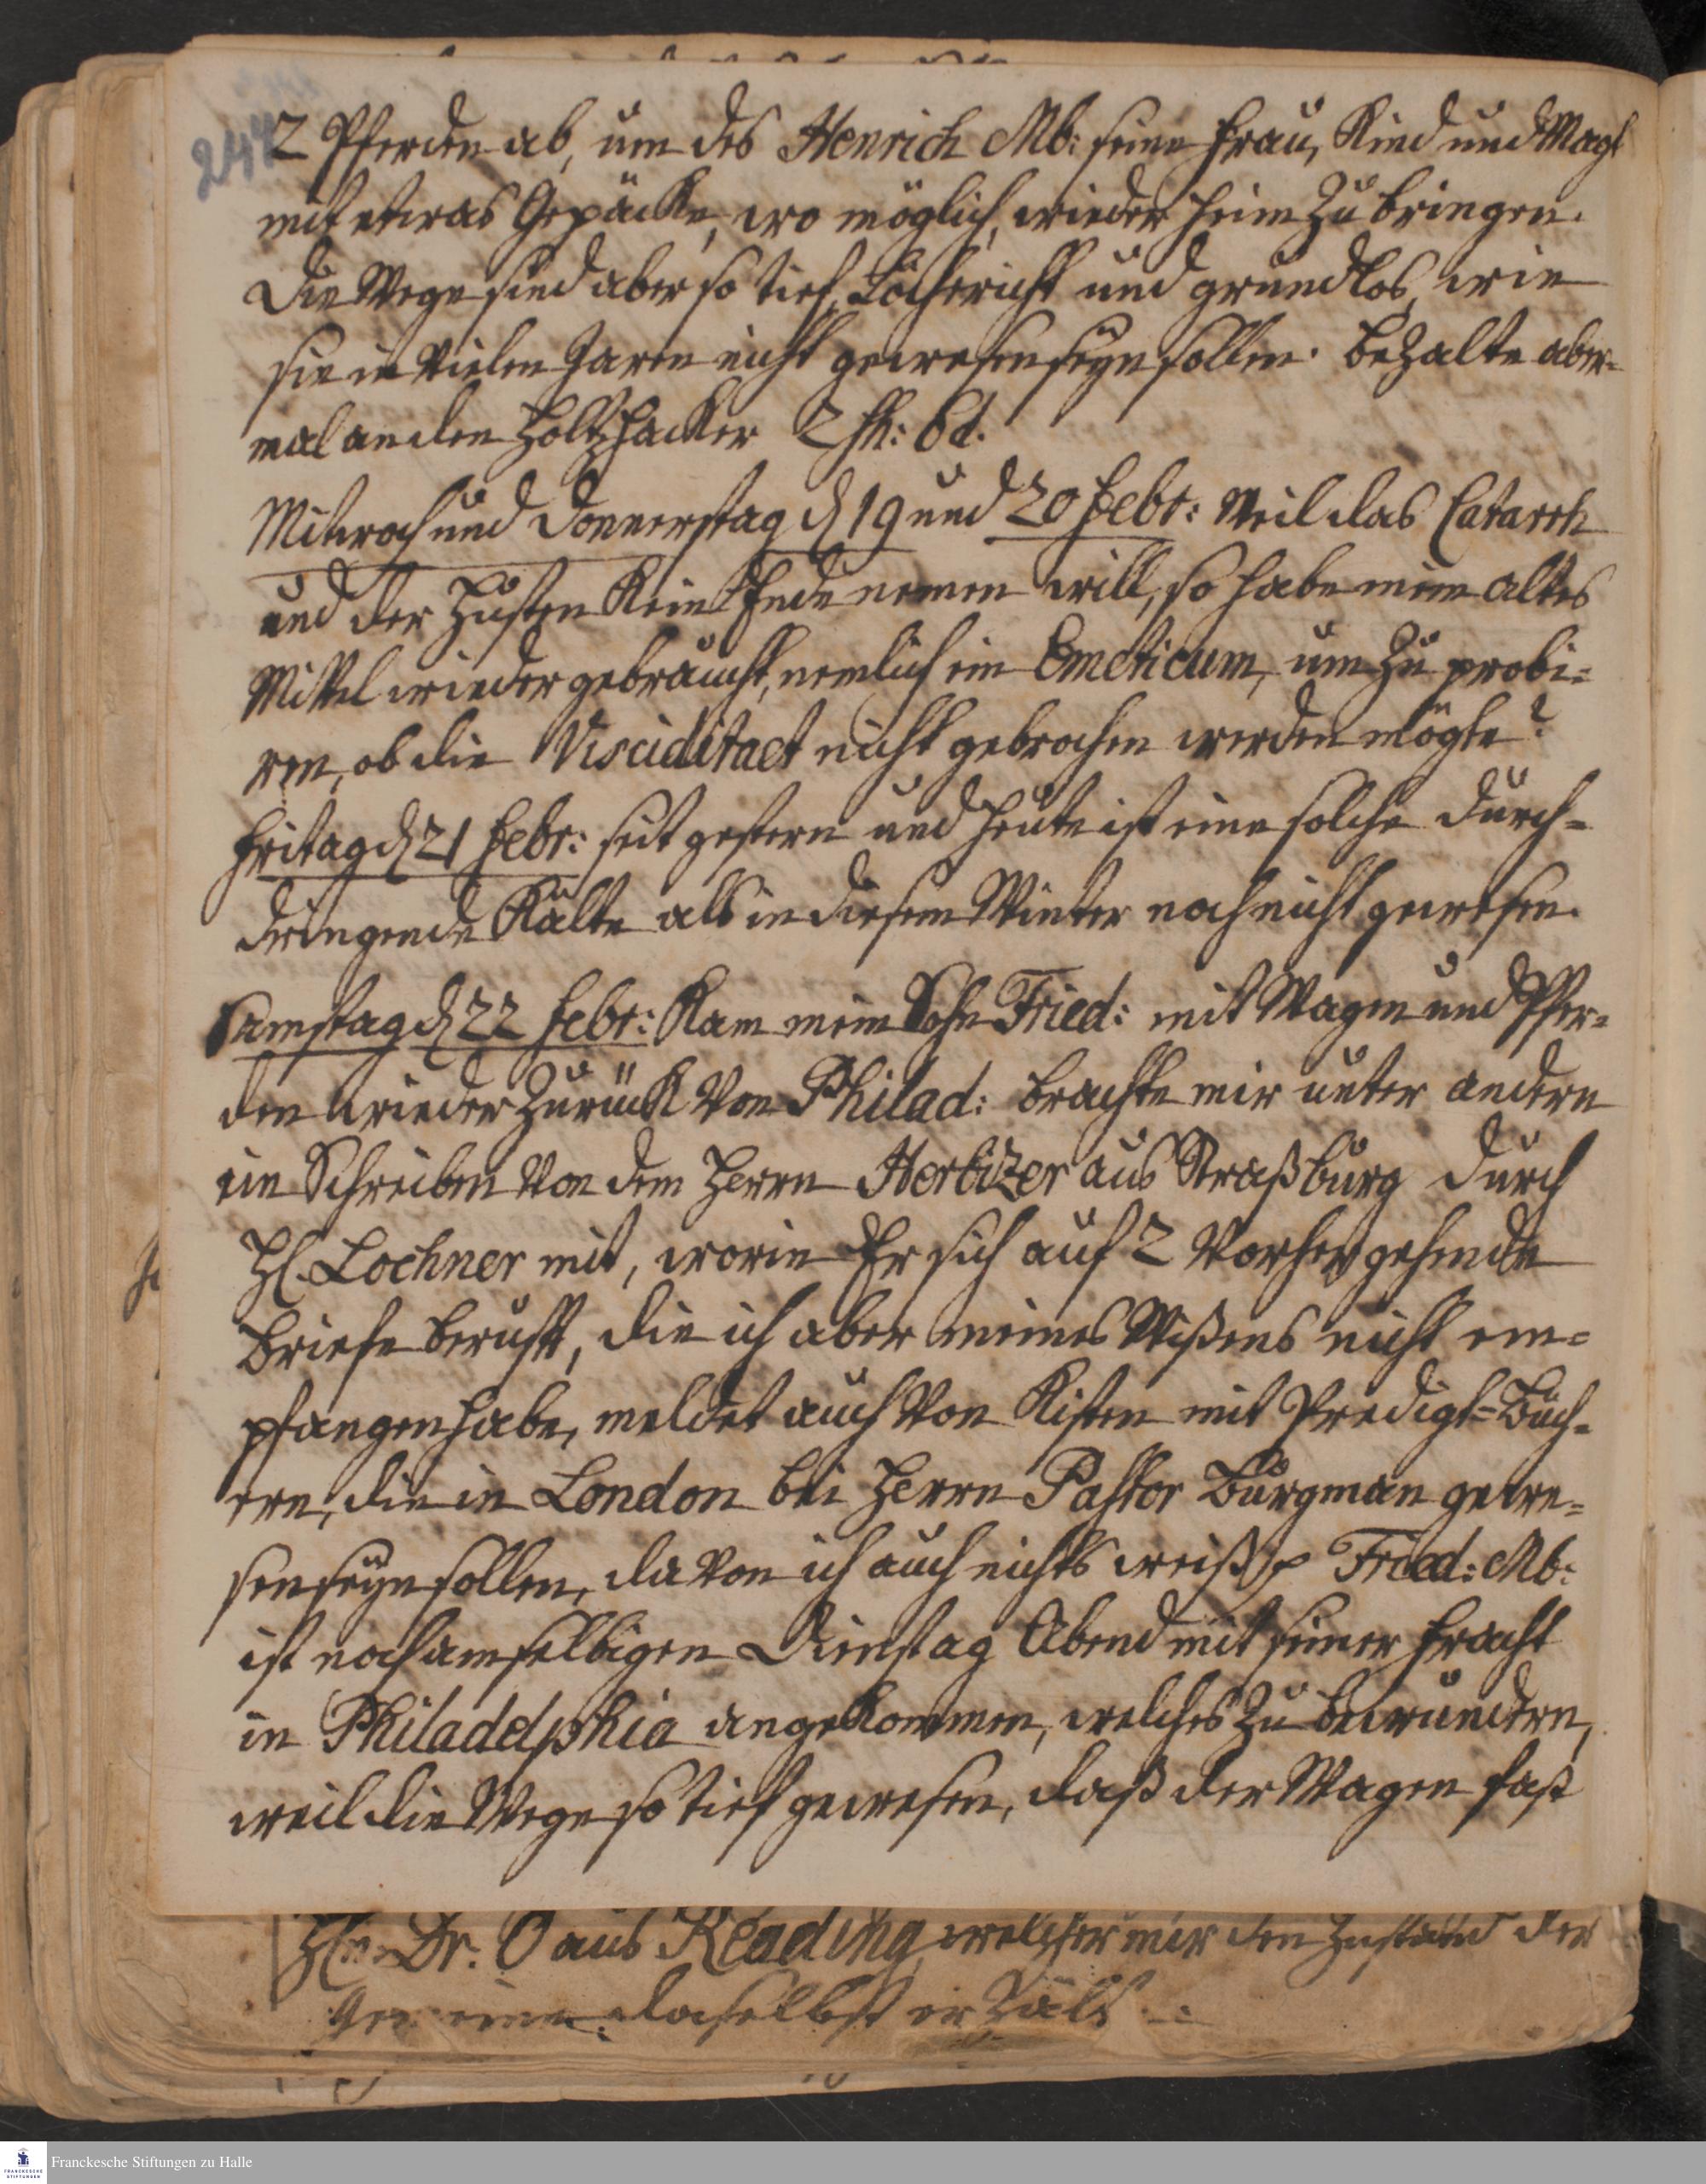 244
2 Pferden ab, um des Henrich Mb: seine Frau, Kind und Magd
mit etwas Gepäcke, wo möglich, wieder heim zu bringen.
Die Wege sind aber so tief, Löchericht und grundlos, wie
sie in vielen Jaren nicht gewesen seyn sollen. bezalte aber-
mal an den Holtzhacker 2 sh: 6d.
Mitwoch und Donnerstag d 19 und 20 Febr: Weil das Catarrh
und der Husten kein Ende nemen will, so habe mein altes
Mittel wieder gebraucht, nemlich ein Emeticum, um zu probi-
ren, ob die Visciditaet nicht gebrochen werden mögte?
Fritag d 21 Febr: seit gestern und heute ist eine solche durch-
dringende Kälte als in diesem Winter noch nicht gewesen.
Samstag d 22 Febr: Kam mein Sohn Fried: mit Wagen und Pfer-
den wieder zurück von Philad: brachte mir unter andern
ein Schreiben von dem Herrn Herbizer aus Straßburg durch
H. Lochner mit, worin Er sich auf 2 vorhergehende
Briefe berufft, die ich aber meines Wißens nicht em-
pfangen habe, meldet auch von Kisten mit Predigt-Büch-
ern, die in London bei Herrn Pastor Burgman gewe-
sen seyn sollen, davon ich auch nichts weiß p Fried: Mb:
ist noch am selbigen Dienstag Abend mit seiner Fracht
in Philadelphia angekommen, welches zu bewundern,
weil die Wege so tief gewesen, daß der Wagen fast
Hn. Dr. O aus Reading, welcher mir den Zustand der
daselbst erzält
Franckesche Stiftungen zu Halle
FRANCKESCHE
STIFTUNGEN